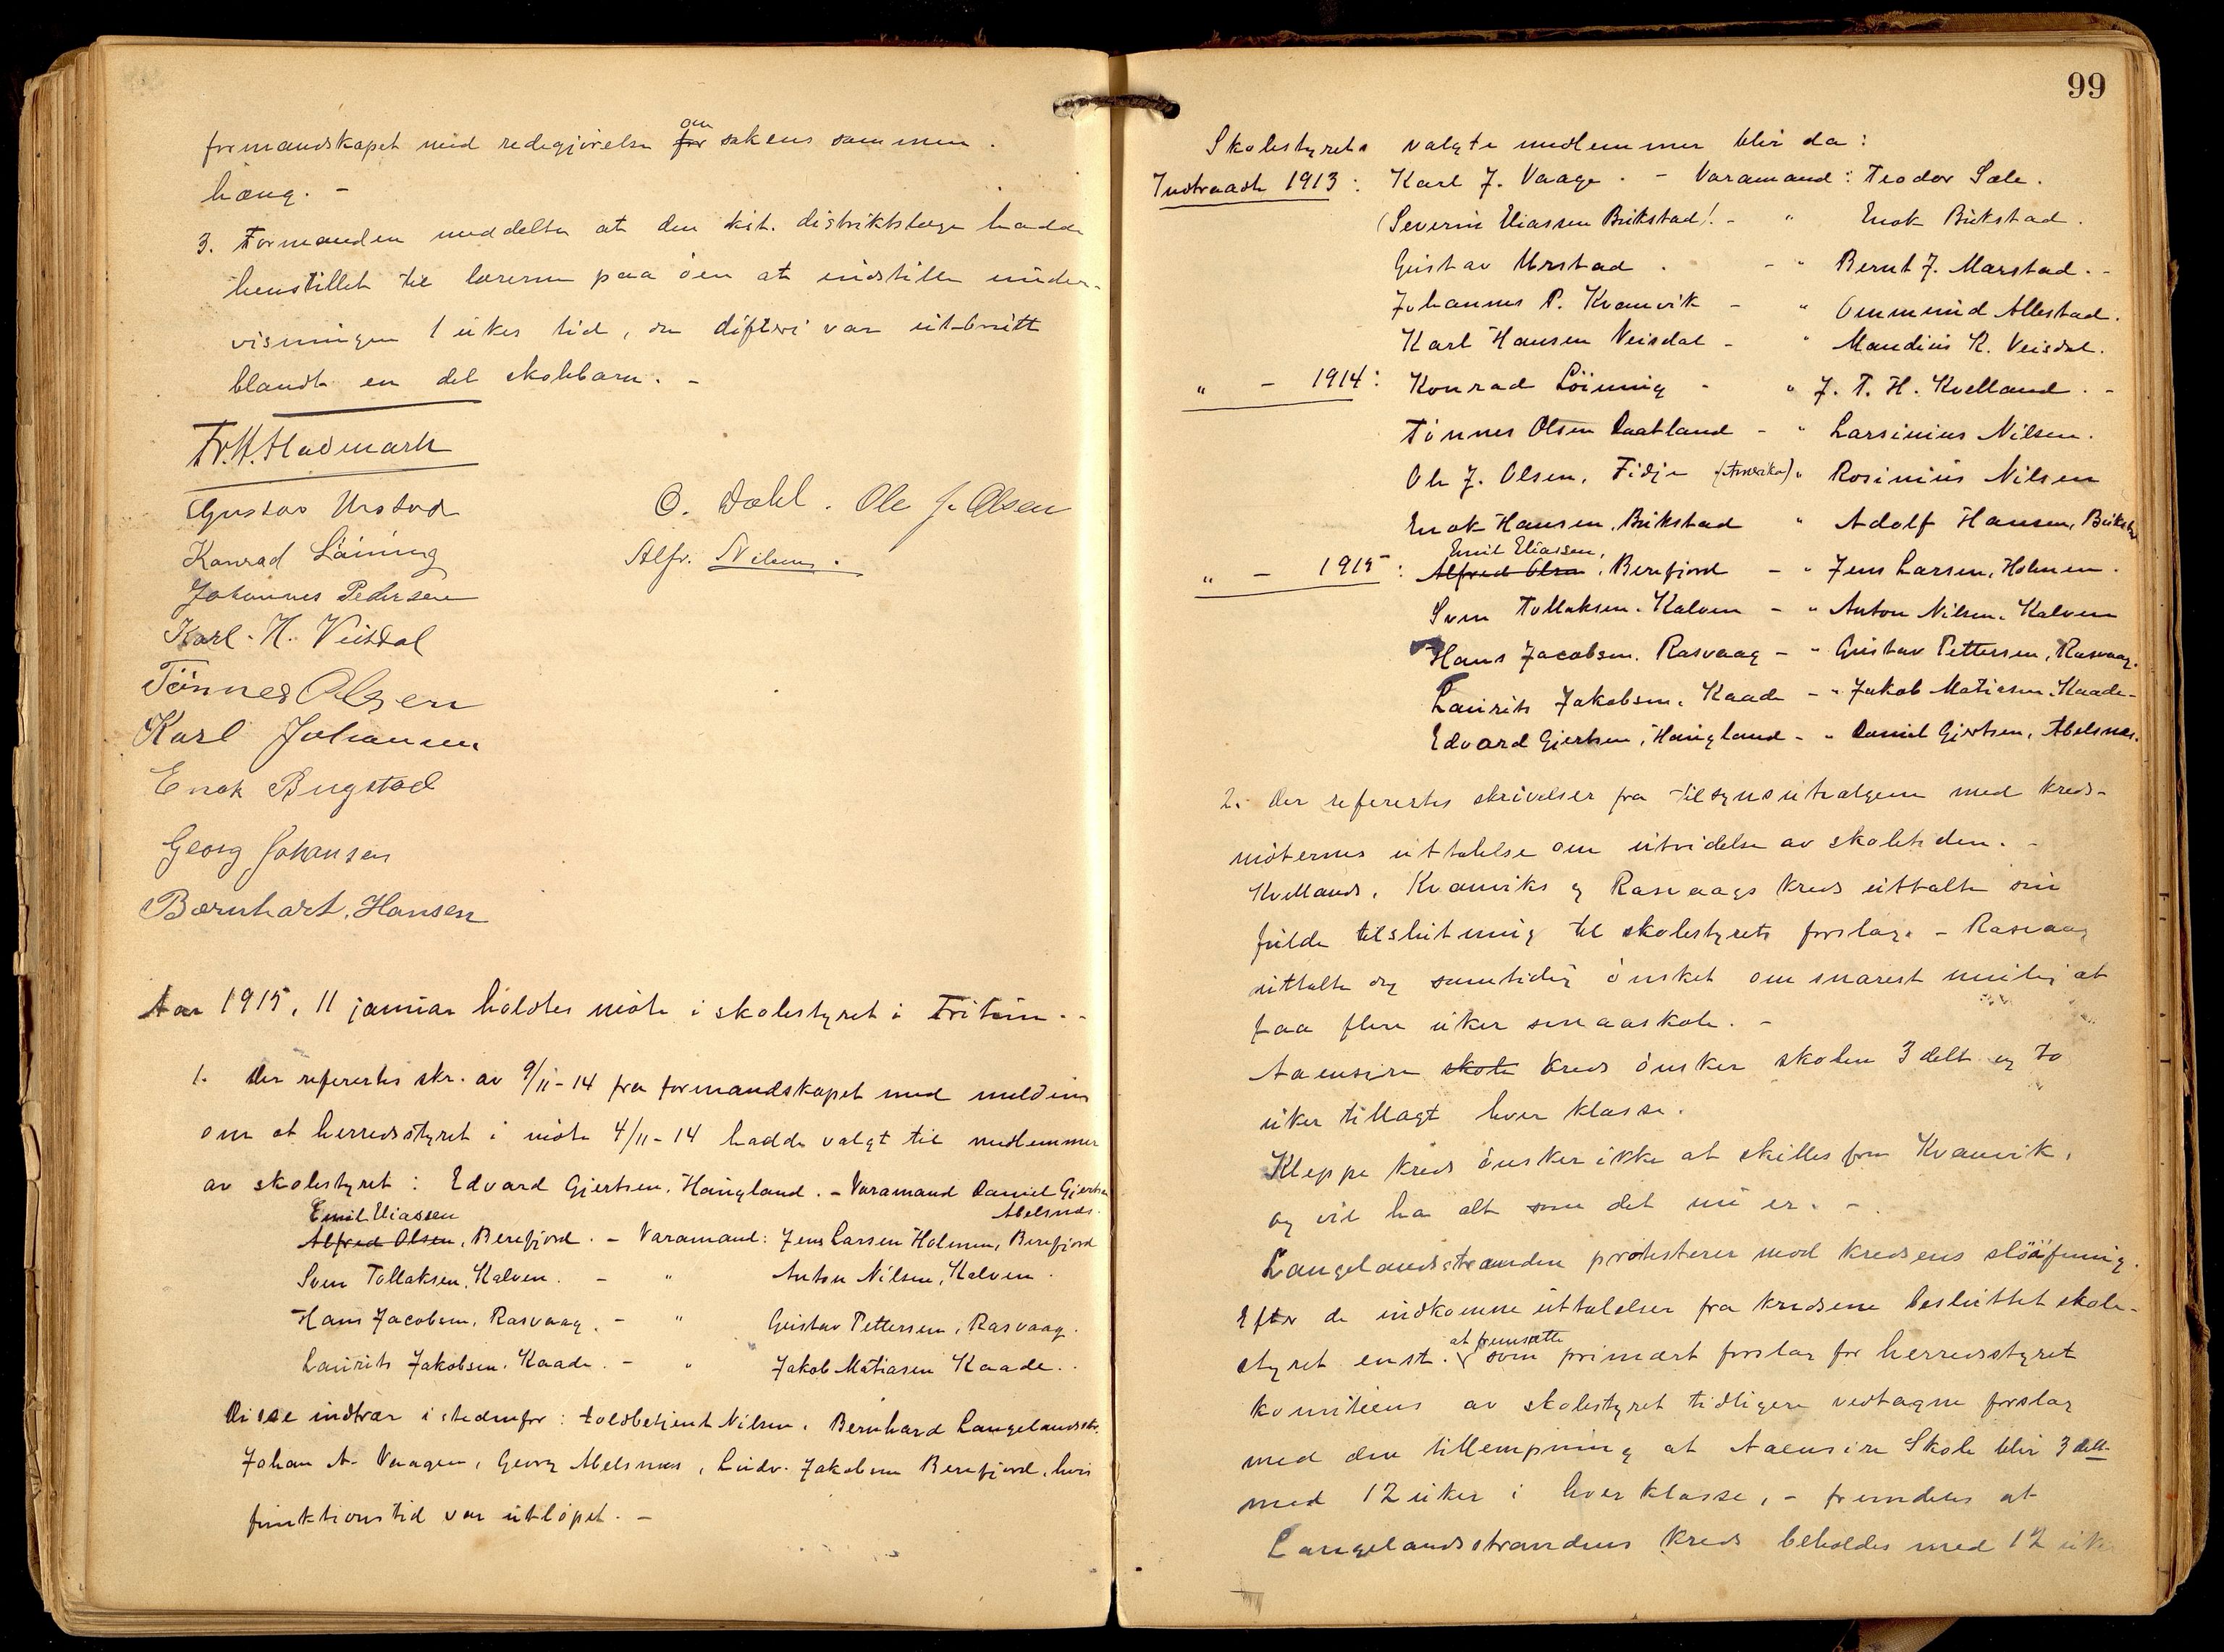 formandskapet med redegjørelse om for sakens sammen-
hæng. -
3. Formanden meddelte at den kst. distriktslæge hadde
henstillet til lærerne paa øen at indstille under-
visningen 1 ukes tid, da difteri var utbrutt
blandt en del skolebarn. -
Fr. H. Hadmark
Gustav Urstad
O. Dahl. Ole J. Olsen
Konrad Löining
Alfr. Nilsen.
Johannes Pedersen
Karl. H. Veisdal
Tönnes Olsen
Karl Johansen
Enok Bugstad
Georg Johansen
Bernhart. Hansen
Aar 1915, 11 januar holdtes møte i skolestyret i Tritun. -
1. Der refererte skr. av 9/11-14 fra formandskapet med melding
om at herredsstyret i møte 4/11-14 hadde valgt til medlemmer
av skolestyret: Edvard Gjertsen, Haugland. - Varamand Daniel Gjertsen
Abelsnes.
Emil Eliassen
Alfred Olsen, Berefjord. - Varamand: Jens Larsen Holmen, Berefjord
Sven Tollaksen, Kalven. - " Anton Nilsen, Kalven.
Hans Jacobsen, Rasvaag. - " Gustav Pettersen, Rasvaag.
Laurits Jakobsen. Kaade. - " Jakob Matiasen Kaade..
Disse indtrær i stedenfor: toldbetjent Nilsen, Bernhard Langelandsstr.
Johan A. Vaagen, Georg Abelsnes, Ludv. Jakobsen Berefjord, hvis
funktionstid var utløpet. -
99
Skolestyrets valgte medlemmer blir da:
Indtraadt 1913: Karl J. Vaage. - Varamand: Teodor Sæle.
(Severin Eliassen Bukstad!. - " Enok Bukstad.
Gustav Urstad. - " Bernt J. Marstad. -
Johannes P. Kvanvik - " Ommund Allestad.
Karl Hansen Veisdal - " Maudius K. Veisdal.
" - 1914: Konrad Löining - " J. T. H. Kvelland. -
Tönnes Olsen Daatland - " Larsinius Nilsen.
Ole J. Olsen, Fidje (Amerika) " Rosinius Nilsen
Enok Hansen, Bukstad " Adolf Hansen, Bukstad
Emil Eliassen,
" - 1915: Alfred Olsen, Berefjord - " Jens Larsen, Holmen.
Sven Tollaksen. Kalven - " Anton Nilsen. Kalven
Hans Jacobsen. Rasvaag - " Gustav Pettersen, Rasvaag.
Laurits Jakobsen, Kaade - " Jakob Matiasen. Kaade-
Edvard Gjertsen, Haugland - " Daniel Gjertsen, Abelsnes.
2. Der referertes skrivelser fra tilsynsutvalgene med kreds-
møternes uttalelse om utvidelse av skoletiden. -
Kvellands, Kvanviks og Rasvaags kreds uttalte sin
fulde tilslutning til skolestyrets forslag. - Rasvaag
uttalte og samtidig ønsket om snarest mulig at
faa flere uker smaaskole. -
Aaensire skole kreds ønsker skolen 3 delt og to
uker tillagt hver klasse.
Kleppe kreds ønsker ikke at skilles fra Kvanvik,
og vil ha alt som det nu er. -
Langelandsstranden protesterer mod kredsens sløifning.
Efter de indkomne uttalelser fra kredsene besluttet skole-
styret enst. at fremsætte som primært forslag for herredsstyret
komiteens av skolestyret tidligere vedtagne forslag
med den tillempning at Aaensire Skole blir 3 delt
med 12 uker i hver klasse, - fremdeles at
Langelandsstrandens kreds beholdes med 12 uker